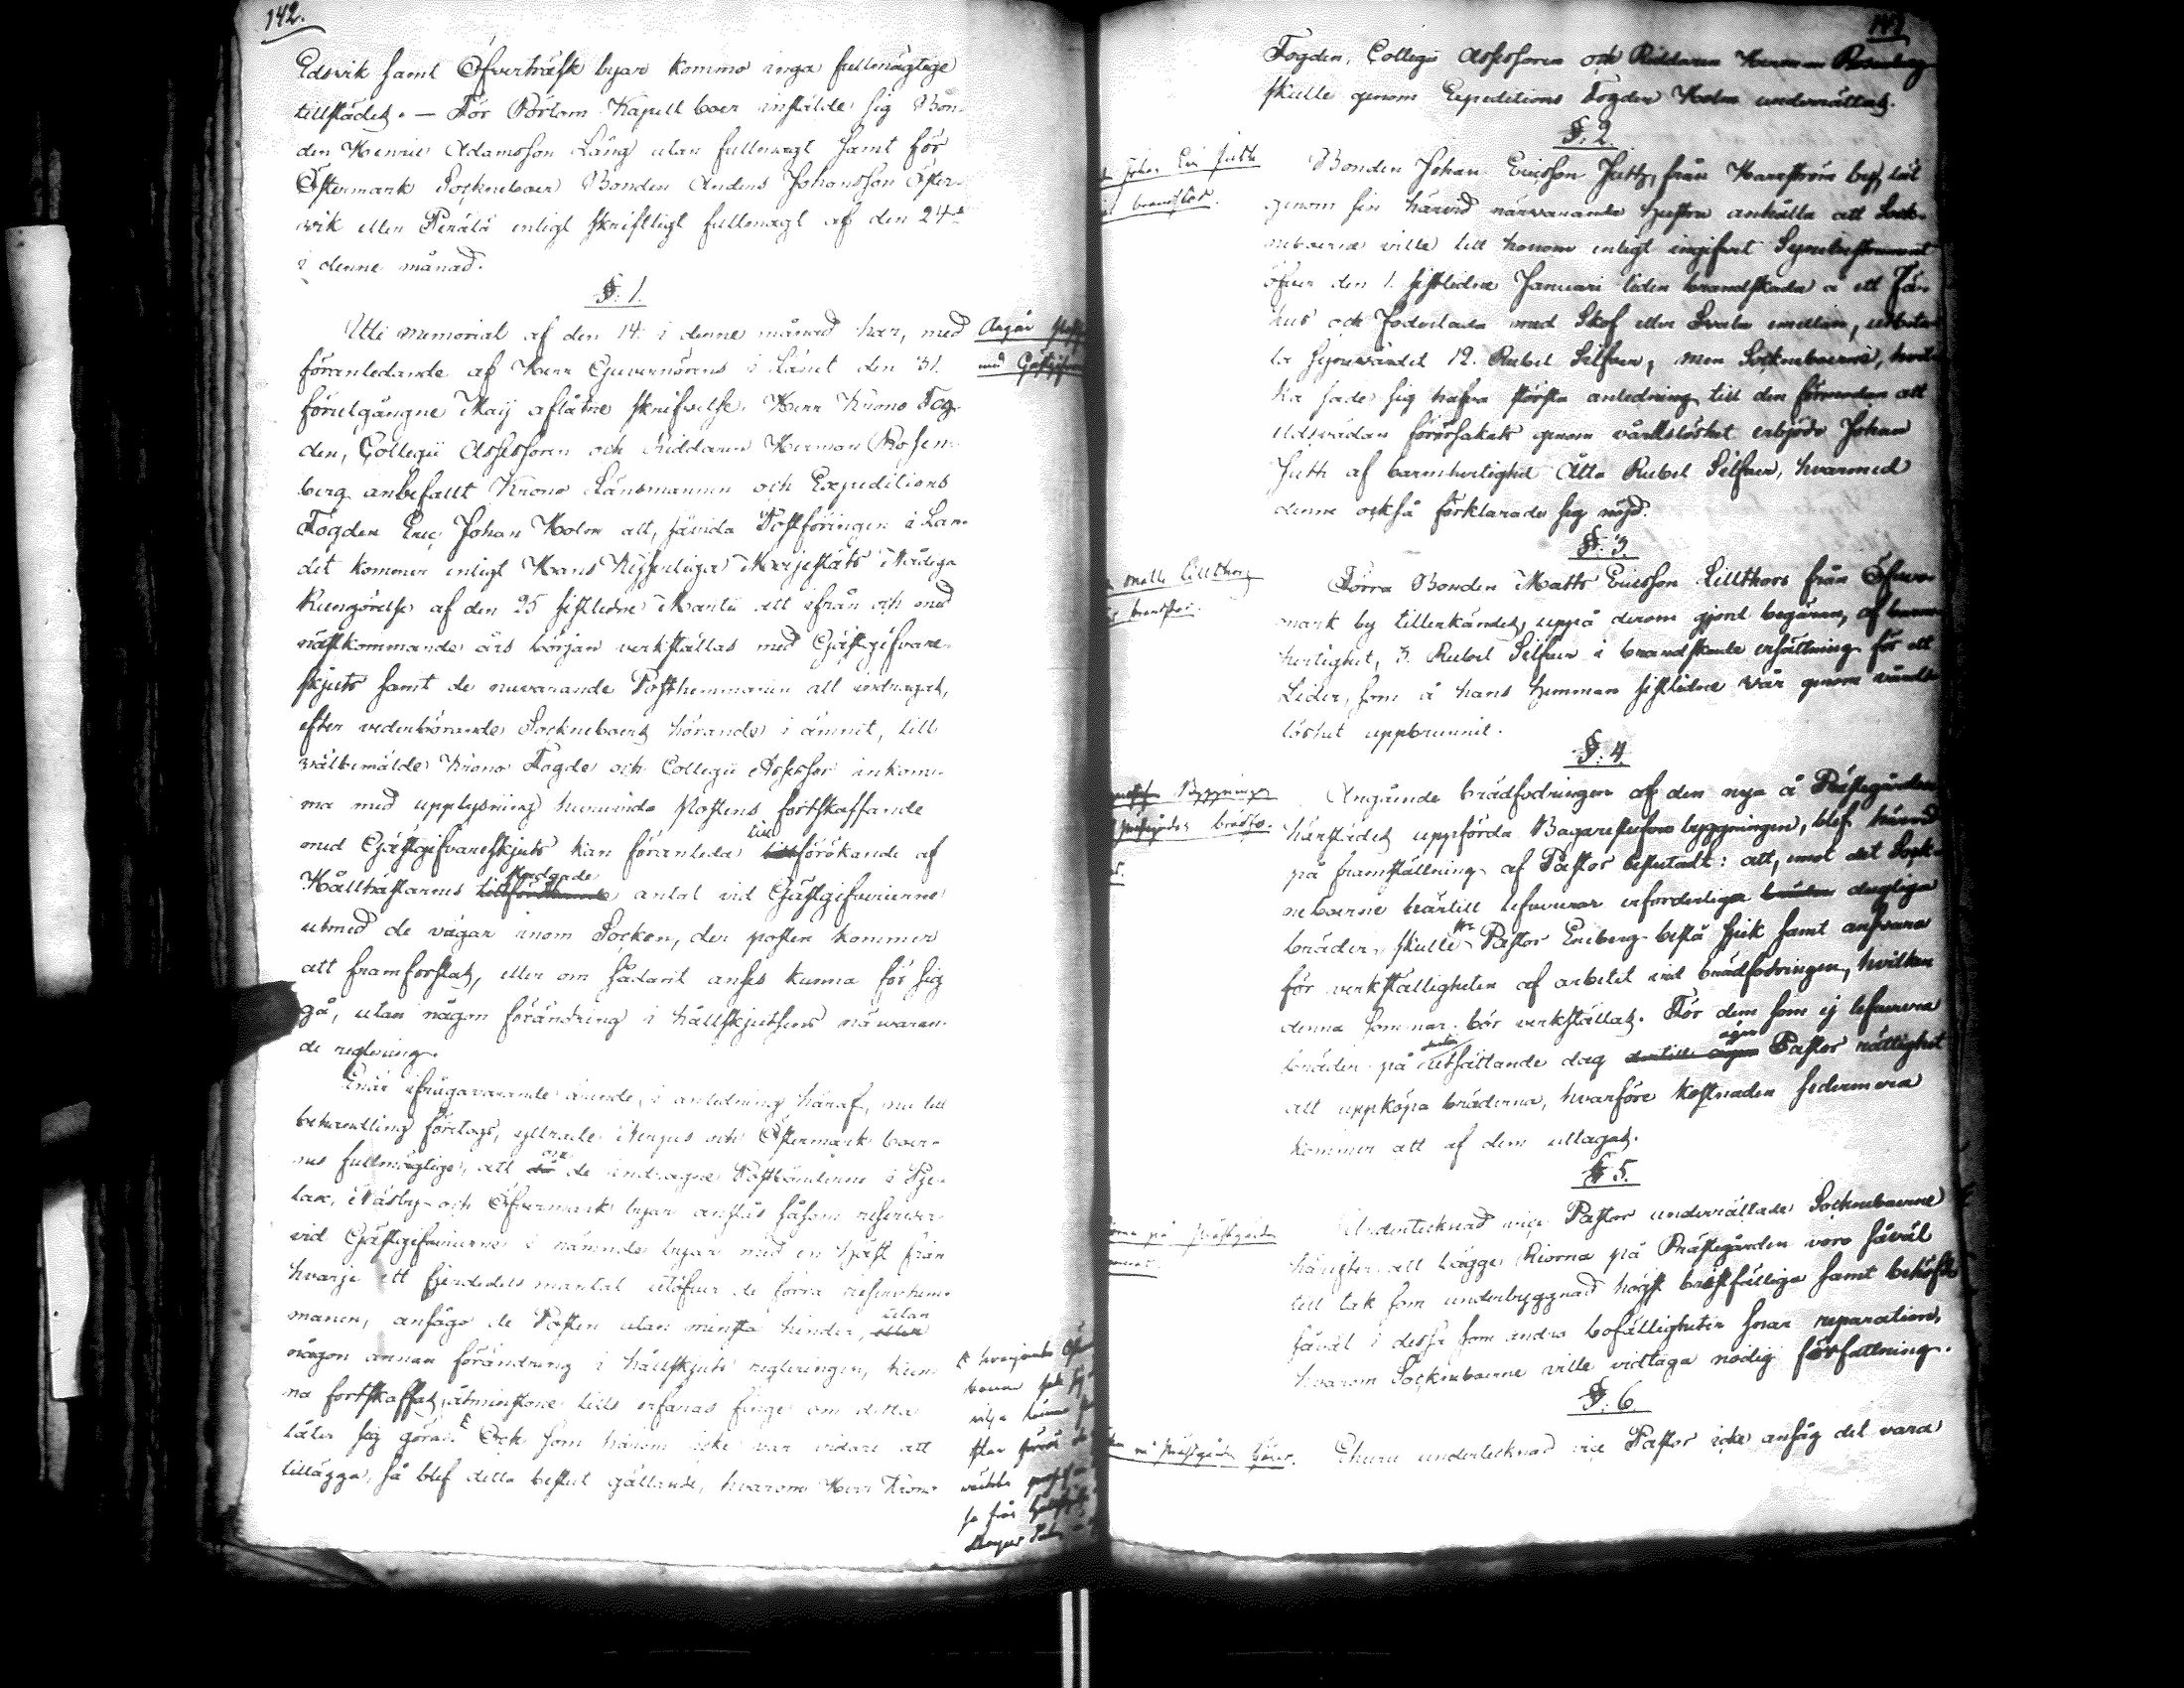 142.
Edsvik samt Öfverträsk byar kommo inga fullmägtige
tillstädes. — För Pörtom Kapell boer instälde sig Bon-
den Henric Adamsson Lång utan fullmagt samt för
Östermark Socknebor Bonden Anders Johansson Öster-
vik eller Perälä enligt skriftligt fullmagt af den 24de
i denne månad.
§. 1.
Uti memorial af den 14. i denne månad har, med
föranledande af Herr Guvernörens i Länet den 31.
förutgångne Maij aflåtne skrifvelse. Herr Krono Fog-
den, Collegii Assessoren och Riddaren Herman Rosen-
berg anbefallt Krono Länsmannen och Expeditions
Fogden Eric Johan Holm att, såvida Postföringen i Lan-
det kommer enligt Hans Kejserliga Majestäts Nådiga
Kungörelse af den 25 sistledne Martii att ifrån och med
nästkommande års början verkställas med Gästgifvare-
skjuts samt de nuvarande Posthemmanen att indragas,
efter vederbörande Sockneboers hörande i ämnet, till
välbemälde Krono Fogde och Collegii Assessor inkom-
ma med upplysning huruvida Postens fortskaffande
med Gästgifvareskjuts kan föranleda till förökande af
Hållhästarnes stadgade antal vid Gästgifverierne
utmed de vägar inom Socken, der posten kommer
att framforslas, eller om sådant anses kunna för sig
gå, utan någon förändring i hållskjutsens nuvaran-
de reglering.
Enär ifrågavarande ärende, i anledning häraf, nu till
behandling företogs, yttrade Nerpes och Östermark boer-
nes fullmägtige, att om de indragne Postbönderne i Pje-
lax, Näsby och Öfvermark byar anslås såsom reserver
vid Gästgifverierne i nämnde byar med en häst från
hvarje ett fjerdedels mantal utöfver de förra reservhem-
manen, ansågo de Posten utan minsta hinder, utan
någon annan förändring i hållskjuts regleringen, kun-
na fortskaffas, åtminstone tills erfaras finge om detta
låter sig göra. Och som härom icke var vidare att
tillägga, så blef detta beslut gällande, hvarom Herr Krono
Angår
med
Fogden, Collegii Assessoren och Riddaren Herman Rosenberg
skulle genom Expeditions Fogden Holm underrättas.
§. 2.
Bonden Johan Ericsson Juth, från Harrström by, lät
genom sin härvid närvarande hustru anhålla att Sock-
neboerne ville till honom enligt ingifvet Syneinstrument
öfver den 1. sistledne Januari liden brandskada å ett Fä-
hus och Foderlada med Skof eller Svale emellan, utbeta-
la synevärdet 12. Rubel Silfver, men Sockneboerne, hvil-
ka sade sig hafva största anledning till den förmodan att
eldsvådan förorsakats genom vårdslöshet erbjödo Johan
Juth af barmhertighet Åtta Rubel Silfver, hvarmed
denne också förklarade sig nöjd.
§. 3.
Förra Bonden Matts Ericsson Lillthors från Öfver-
mark by tillerkändes, uppå derom gjord begäran, af barm-
hertighet, 3. Rubel Silfver i brandskade ersättning för ett
Lider, som å hans hemman sistledne vår genom vårds-
löshet uppbrunnit.
§. 4.
Angående brädfodringen af den nya å Prästegården
härstädes uppförda Bagarestufvu byggningen, blef härvid
på framställning af Pastor beslutadt: att, emot det Sock-
neboerne härtill lefvererar erforderliga dugliga
bräder, skulle Pastor Eneberg bestå spik samt ansvara
för verkställigheten af arbetet vid brädfodringen, hvilken
denna sommar bör verkställas. För dem som ej lefverera
bräder på utsättande dag äger Pastor rättighet
att uppköpa bräderna, hvarföre kostnaden sedermera
kommer att af dem uttagas.
§ 5.
Undertecknad vice Pastor underrättade Sockneboerne
härefter att bägge Riorna på Prästegården voro såväl
till tak som underbyggnad högst bristfällige samt behöfde
såväl i dessa som andra bofälligheter snar reparation,
hvarom Sockneboerne ville vidtaga nödig författning.
§. 6.
Ehuru undertecknad vice Pastor icke ansåg det vara